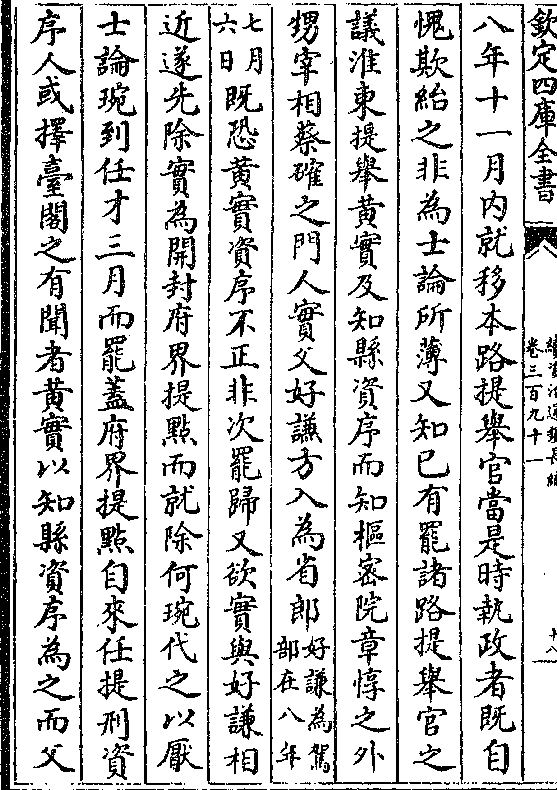 欽定四庫全書
續資治通鑑長編
卷三百九十一
十八
八年十一月内就移本路提舉官當是時執政者既自
愧欺紿之非為士論所薄又知已有罷諸路提舉官之
議淮東提舉黄實及知縣資序而知樞密院章惇之外
甥宰相蔡確之門人實父好謙方入為省郎好謙為駕部在八年
七月六日既恐黄實資序不正非次罷歸又欲實與好謙相
近遂先除實為開封府界提點而就除何琬代之以厭
士論琬到任才三月而罷蓋府界提點自來任提刑資
序人或擇臺閣之有聞者黄實以知縣資序為之而父